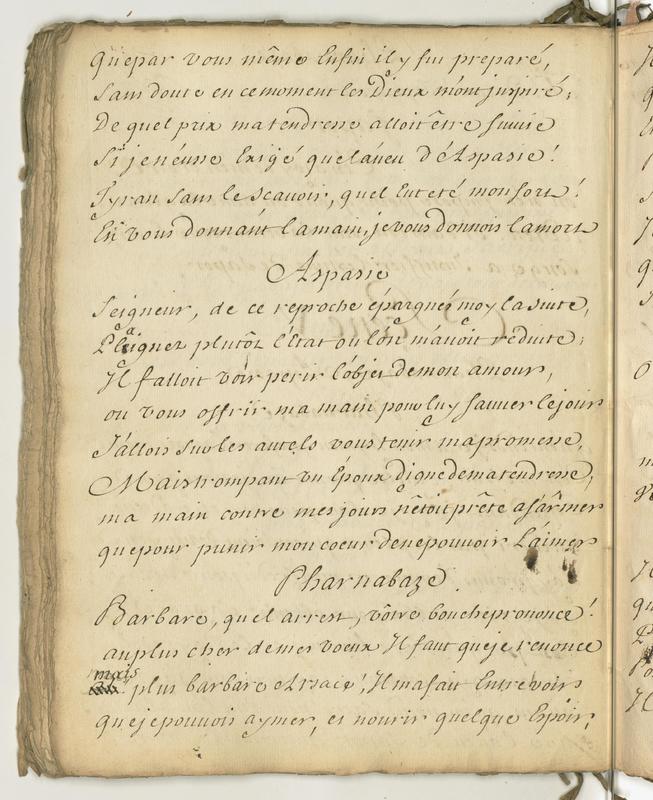 quepar vous même Enfin il y fut préparé,
sans doute en cemoment les Dieux m'ont inspiré;
De quel prix matendresse alloit être suivie
Si jen'eusse Exigé quel'aveu d'Aspasie!
Tyran sans le scavoir, quel Eut eté mon sort!
En vous donnant lamain, je vous donnois lamort
Aspasie
Seigneur, de ce reproche épargnés moy la suite,
Plaignez plutôt l'état ou l'on m'avoit réduite;
Il falloit voir perir l'objet demon amour,
ou vous offrir ma main pour luy sauver lejour
J'allois sur les autels vous tenir mapromesse,
Mais trompant un Époux digne dematendresse,
ma main contre mes jours n'étoit prête as'armer
quepour punir mon coeur denepouvoir L'aimer
Pharnabaze
Barbare, quel arrest, vôtre boucheprononce!
auplus cher demes voeux Il faut queje renonce
mais
plus barbare Arsace! Il mafait Entrevoir
quejepouvois aymer, et nourir quelque Espoir;